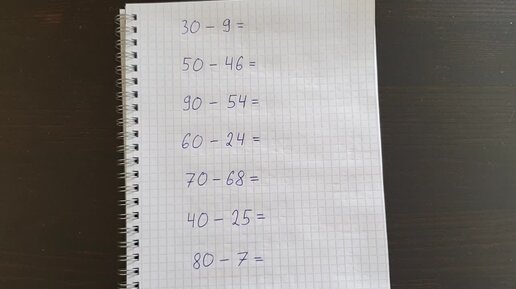 30 - 9 =
50 - 46 =
90 - 54 =
60 - 24 =
70 - 68 =
40 - 25 =
80 - 7 =